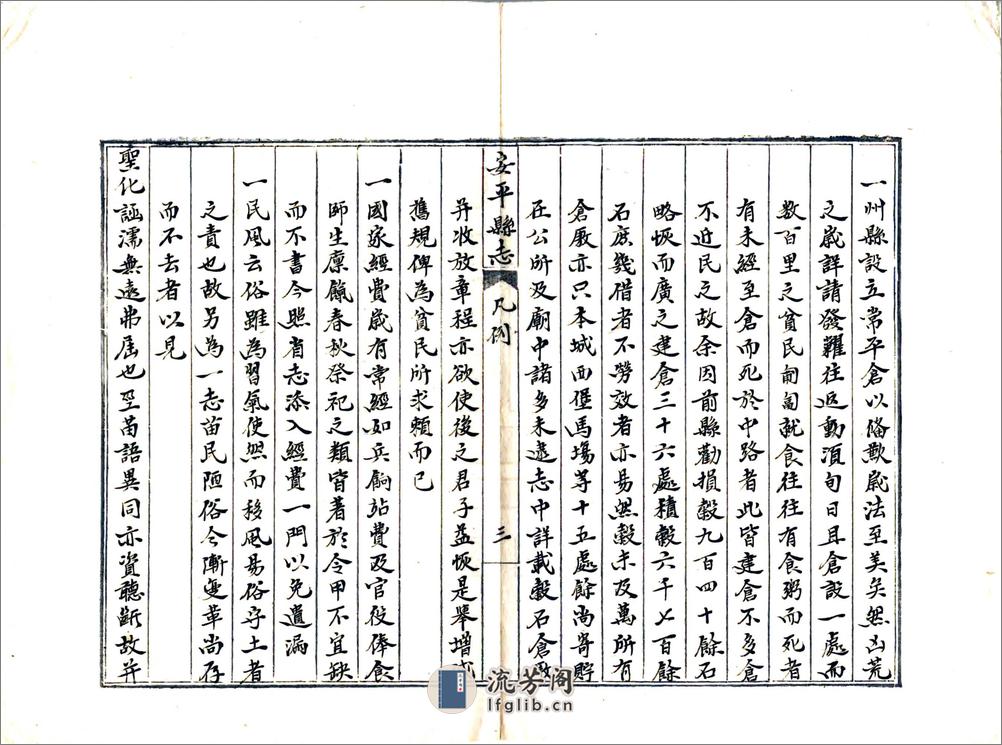 一州縣設立常平倉以備歉歲法至美矣然凶荒
之歲詳請發糶往返動湏旬日且倉設一處而
数百里之貧民匍匐就食往往有食粥而死者
有未經至倉而死於中路者此皆建倉不多倉
不近民之故余因前縣勸捐穀九百四十餘石
略恢而廣之建倉三十六處積穀六千七百餘
石庶幾借者不勞效者亦易然穀未及萬所有
倉厫亦只本城西堡馬塲等十五處餘尚寄貯
在公所及廟中諸多未逮志中詳載穀石倉厫
安平縣志 凡例 三
并收放章程亦欲使後之君子益恢是舉增
舊規俾為貧民所求賴而已
一國家經費歲有常經如兵餉站費及官役俸食
師生廪餼春秋祭祀之類皆著於令甲不宜缺
而不書今照省志添入經費一門以免遺漏
一民風云俗雖為習氣使然而移風易俗守土者
之責也故另為一志苗民陋俗今漸變革尚存
而不去者以見
聖化誕濡無遠弗届也至苗語異同亦資聽斷故并
流芳阁
lfglib.cn